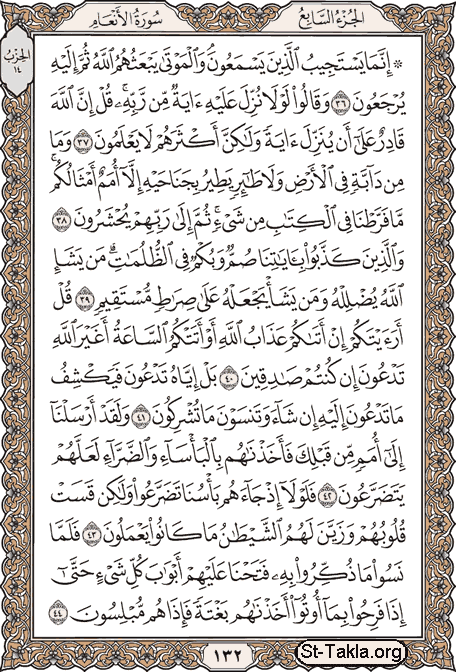 الجزء السابع
سورة الأنعام
الحزب
١٤
۞ إِنَّمَا يَسْتَجِيبُ الَّذِينَ يَسْمَعُونَ وَالْمَوْتَىٰ يَبْعَثُهُمُ اللَّهُ ثُمَّ إِلَيْهِ
يُرْجَعُونَ ٣٦ وَقَالُوا لَوْلَا نُزِّلَ عَلَيْهِ ءَايَةٌ مِّن رَّبِّهِ ۚ قُلْ إِنَّ اللَّهَ
قَادِرٌ عَلَىٰ أَن يُنَزِّلَ ءَايَةً وَلَٰكِنَّ أَكْثَرَهُمْ لَا يَعْلَمُونَ ٣٧ وَمَا
مِن دَابَّةٍ فِي الْأَرْضِ وَلَا طَائِرٍ يَطِيرُ بِجَنَاحَيْهِ إِلَّا أُمَمٌ أَمْثَالُكُم ۚ
مَّا فَرَّطْنَا فِي الْكِتَابِ مِن شَيْءٍ ۚ ثُمَّ إِلَىٰ رَبِّهِمْ يُحْشَرُونَ ٣٨
وَالَّذِينَ كَذَّبُوا بِـَٔايَاتِنَا صُمٌّ وَبُكْمٌ فِي الظُّلُمَاتِ ۗ مَن يَشَإِ
اللَّهُ يُضْلِلْهُ وَمَن يَشَأْ يَجْعَلْهُ عَلَىٰ صِرَاطٍ مُّسْتَقِيمٍ ٣٩ قُلْ
أَرَءَيْتَكُمْ إِنْ أَتَىٰكُمْ عَذَابُ اللَّهِ أَوْ أَتَتْكُمُ السَّاعَةُ أَغَيْرَ اللَّهِ
تَدْعُونَ إِن كُنتُمْ صَادِقِينَ ٤٠ بَلْ إِيَّاهُ تَدْعُونَ فَيَكْشِفُ
مَا تَدْعُونَ إِلَيْهِ إِن شَاءَ وَتَنسَوْنَ مَا تُشْرِكُونَ ٤١ وَلَقَدْ أَرْسَلْنَا
إِلَىٰ أُمَمٍ مِّن قَبْلِكَ فَأَخَذْنَاهُم بِالْبَأْسَاءِ وَالضَّرَّاءِ لَعَلَّهُمْ
يَتَضَرَّعُونَ ٤٢ فَلَوْلَا إِذْ جَاءَهُم بَأْسُنَا تَضَرَّعُوا وَلَٰكِن قَسَتْ
قُلُوبُهُمْ وَزَيَّنَ لَهُمُ الشَّيْطَانُ مَا كَانُوا يَعْمَلُونَ ٤٣ فَلَمَّا
نَسُوا مَا ذُكِّرُوا بِهِ فَتَحْنَا عَلَيْهِمْ أَبْوَابَ كُلِّ شَيْءٍ حَتَّىٰ
إِذَا فَرِحُوا بِمَا أُوتُوا أَخَذْنَاهُم بَغْتَةً فَإِذَا هُم مُّبْلِسُونَ ٤٤
١٣٢
St-Takla.org